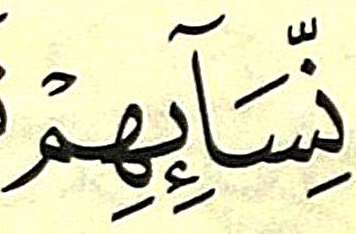 نِّسَآئِهِمْ